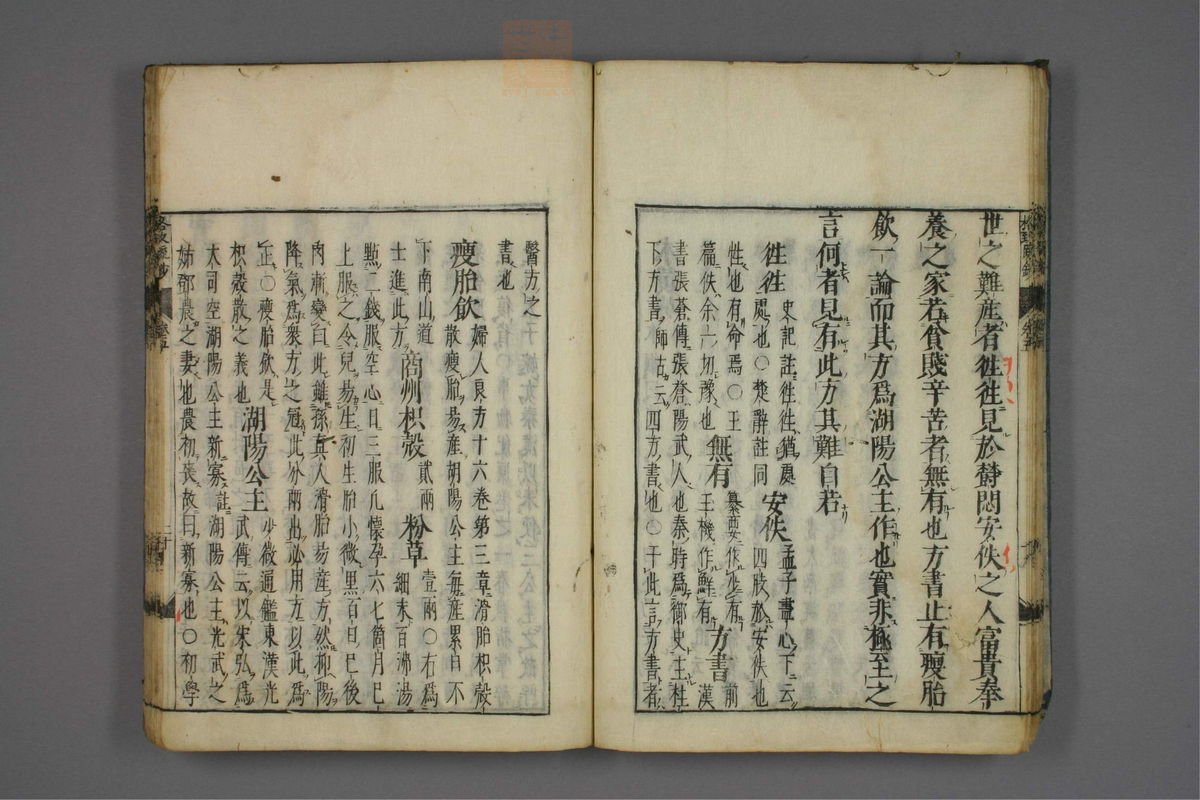 世之難産者徃徃見於欝悶安佚之人富貴奉
養之家若貧賤辛苦者無有也方書止有瘦胎
飲一論而其方爲湖陽公主作也實非極至之
言何者見有此方其難自若
徃徃 史記註徃徃猶處 安佚 孟子盡心下云
處也〇楚辭註同 四肢於安佚也
性也有命焉〇王 無有 纂要佚少有 前
篇佚余一切豫也 玉機作鮮有 方書 漢
書張蒼傳張蒼陽武人也秦時爲御史主柱
下方書師古云四方書也〇于此言方書者
醫方之
書也
瘦胎飲 婦人良方十六卷第三章滑胎枳殼
散瘦胎易産胡陽公主毎産累日不
下南山道 商州枳殼 貳兩 粉草 壹兩〇右爲
士進此方 細末百沸湯
點二錢服空心日三服凢懷孕六七箇月已
上服之令兒易生初生胎小微黒百日已後
肉漸變白此雖孫真人滑胎易産方然抑陽
降氣爲衆方之冠此分兩出必用方以此爲
正〇瘦胎飲是 湖陽公主 少微通鑑東漢光
枳殼散之義也 武傳云以宋弘爲
大司空湖陽公主新寡註湖陽公主光武之
姊鄧農之妻也農初喪故曰新寡也〇初學